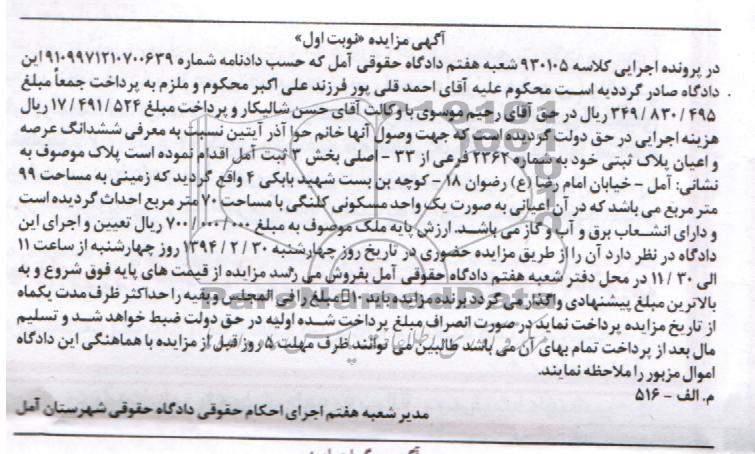 آگهی مزایده «نوبت اول»
در پرونده اجرایی کلاسه ۹۳۰۱۰۵ شعبه هفتم دادگاه حقوقی آمل که حسب دادنامه شماره ۹۱۰۹۹۷۱۲۱۰۷۰۰۶۳۹ این
دادگاه صادر گردیده است محکوم علیه آقای احمد قلی پور فرزند علی اکبر محکوم و ملزم به پرداخت جمعاً مبلغ
۳۴۹/۸۳۰/۴۹۵ ریال در حق آقای رحیم موسوی با وکالت آقای حسن شالیکار و پرداخت مبلغ ۱۷/۴۹۱/۵۲۴ ریال
هزینه اجرایی در حق دولت گردیده است که جهت وصول آنها خانم حوا آذر آیتین نسبت به معرفی ششدانگ عرصه
و اعیان پلاک ثبتی خود به شماره ۲۳۶۲ فرعی از ۳۳ - اصلی بخش ۳ ثبت آمل اقدام نموده است پلاک موصوف به
نشانی: آمل - خیابان امام رضا (ع) رضوان ۱۸ - کوچه بن بست شهید بابکی ۴ واقع گردید که زمینی به مساحت ۹۹
متر مربع می باشد که در آن اعیانی به صورت یک واحد مسکونی کلنگی با مساحت ۷۰ متر مربع احداث گردیده است
و دارای انشعاب برق و آب و گاز می باشد. ارزش پایه ملک موصوف به مبلغ ۷۰۰/۰۰۰/۰۰۰ ریال تعیین و اجرای این
دادگاه در نظر دارد آن را از طریق مزایده حضوری در تاریخ روز چهارشنبه ۱۳۹۴/۲/۳۰ روز چهارشنبه از ساعت ۱۱
الی ۱۱/۳۰ در محل دفتر شعبه هفتم دادگاه حقوقی آمل بفروش می رسد مزایده از قیمت های پایه فوق شروع و به
بالاترین مبلغ پیشنهادی واگذار می گردد برنده مزایده باید ۱۰٪ مبلغ را فی المجلس و بقیه را حداکثر ظرف مدت یکماه
از تاریخ مزایده پرداخت نماید در صورت انصراف مبلغ پرداخت شده اولیه در حق دولت ضبط خواهد شد و تسلیم
مال بعد از پرداخت تمام بهای آن می باشد طالبین می توانند ظرف مهلت ۵ روز قبل از مزایده با هماهنگی این دادگاه
اموال مزبور را ملاحظه نمایند.
م. الف - ۵۱۶
مدیر شعبه هفتم اجرای احکام حقوقی دادگاه حقوقی شهرستان آمل